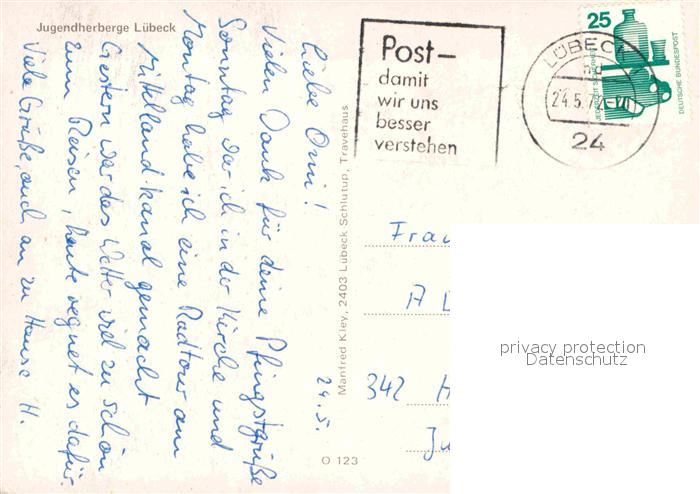 Jugendherberge Lübeck
Liebe Omi! 24.5.
Vielen Dank für deine Pfingstgrüße
Sonntag war ich in der Kirche und
Montag habe ich eine Radtour am
Mittellandkanal gemacht
Gestern war das Wetter viel zu schön
zum Reisen, heute regnet es dafür.
Viele Grüße, auch an zu Hause H.
Manfred Kley, 2403 Lübeck Schlutup, Travehaus
O 123
Post–
damit
wir uns
besser
verstehen
LÜBECK
24.5.7
24
25
JEDERZEIT SICHERHEIT
DEUTSCHE BUNDESPOST
Frau
A
342 H
Ju
privacy protection
Datenschutz